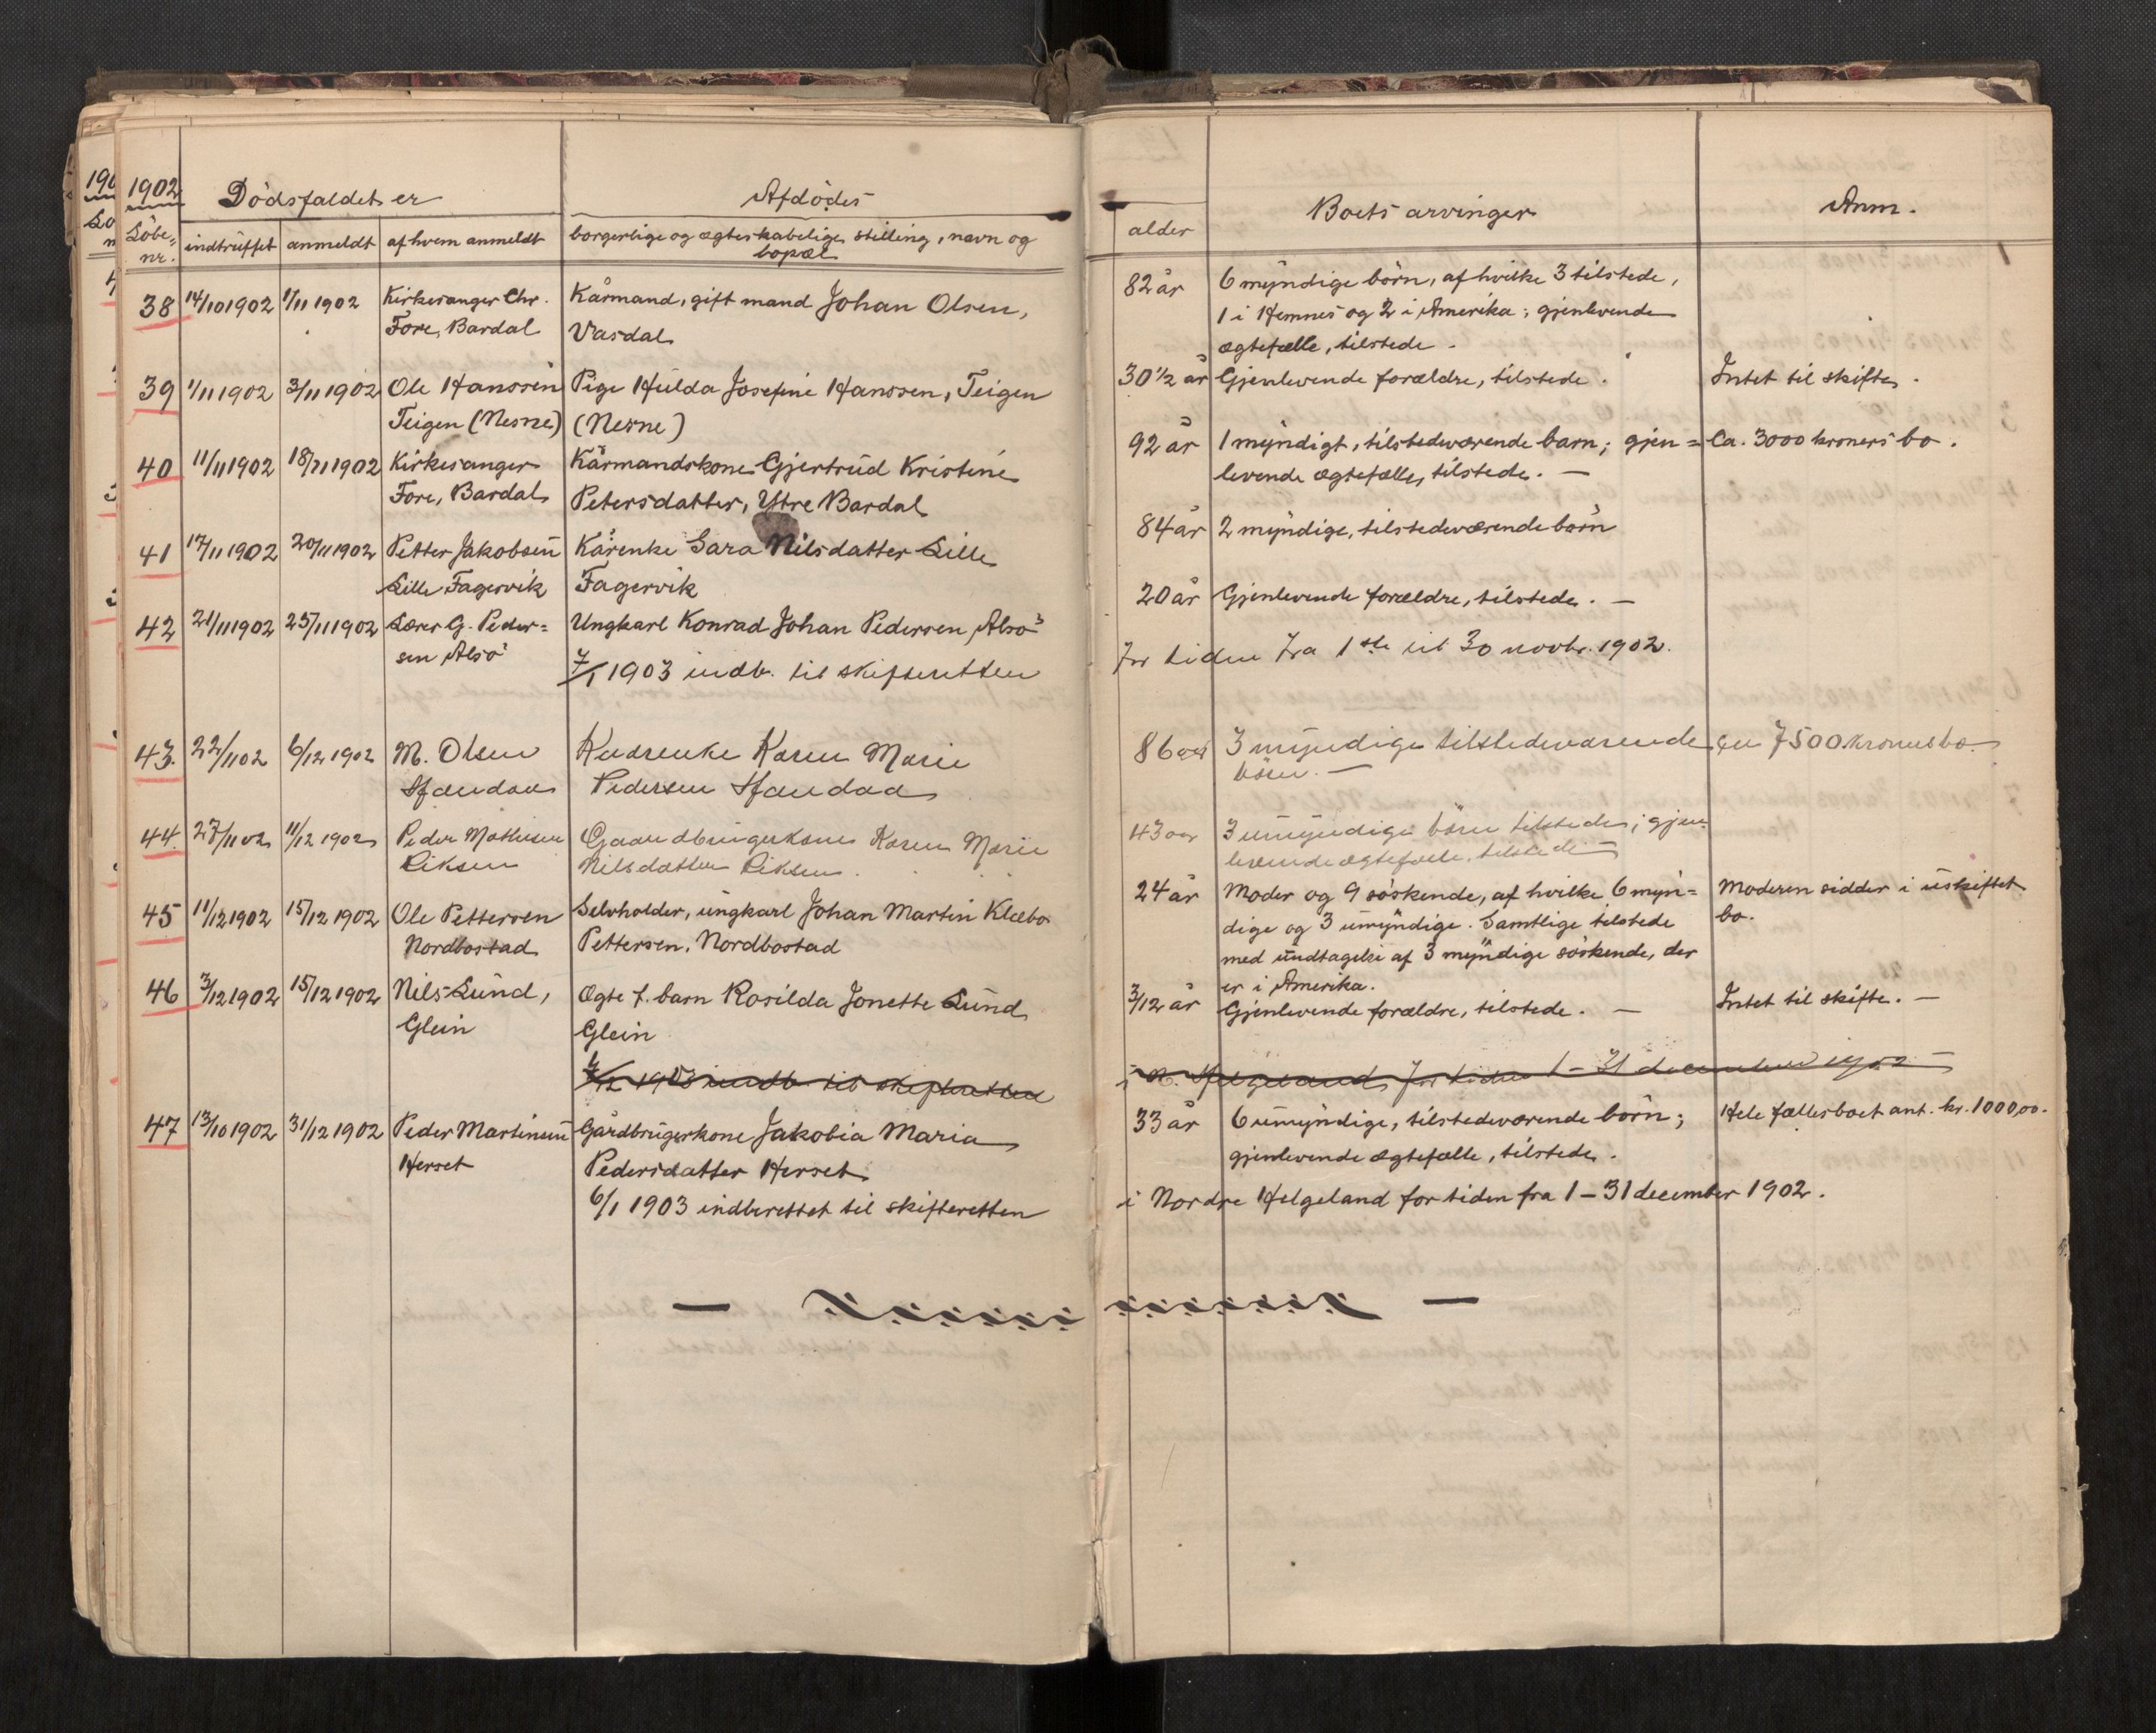 1902
Dödsfaldet er
Afdödes
Löbe-
nr.
indtruffet
anmeldt
af hvem anmeldt
borgerlige og ægteskabelige stilling, navn og
bopæl
alder
Boets arvinger
Anm.
38 14/10 1902 1/11 1902 Kirkesanger Chr. Kårmand, gift mand Johan Olsen, 82 år 6 myndige börn, af hvilke 3 tilstede,
Fore, Bardal Vasdal 1 i Hemnes og 2 i Amerika; gjenlevende
ægtefælle, tilstede.
39 1/11 1902 3/11 1902 Ole Hanssen Pige Hulda Josefine Hanssen, Teigen 30 1/2 år Gjenlevende forældre, tilstede. Intet til skifte.
Teigen (Nesne) (Nesne)
40 11/11 1902 18/11 1902 Kirkesanger Kårmandskone Gjertrud Kristine 92 år 1 myndigt, tilstedeværende barn; gjen= Ca. 3000 kroners bo.
Fore, Bardal Petersdatter, Ytre Bardal levende ægtefælle, tilstede. —
41 17/11 1902 20/11 1902 Petter Jakobsen Kårenke Sara Nilsdatter Lille 84 år 2 myndige, tilstedeværende börn
Lille Fagervik Fagervik
42 21/11 1902 25/11 1902 Lærer G. Peder= Ungkarl Konrad Johan Pedersen, Alsö 20 år Gjenlevende forældre, tilstede. —
sen Alsö
7/1 1903 indb. til skifteretten for tiden fra 1ste til 30 novbr. 1902.
43. 22/11 02 6/12 1902 M. Olsen Kaarenke Karen Marie 86 aar 3 myndige tilstedeværende 7500 kroners bo.
Pedersen börn. —
44. 27/11 02 11/12 1902 Peder Mathisen Gaardbrugerkone Karen Marie 43 aar 3 umyndige börn tilstede; gjen-
Nilsdatter levende ægtefælle, tilstede —
45 11/12 1902 15/12 1902 Ole Pettersen Selvholder, ungkarl Johan Martin Klæbo 24 år Moder og 9 söskende, af hvilke 6 myn= Moderen sidder i uskiftet
Nordbostad Pettersen, Nordbostad dige og 3 umyndige. Samtlige tilstede bo.
med undtagelse af 3 myndige söskende, der
er i Amerika.
46 3/12 1902 15/12 1902 Nils Lund, Ægte f. barn Rosilda Jonette Lund 3/12 år Gjenlevende forældre, tilstede. — Intet til skifte. —
Glein Glein
1903 indb. til skifteretten i N. Helgeland for tiden 1 – 31 december 1902
47 13/10 1902 31/12 1902 Peder Martinsen Gårdbrugerkone Jakobia Maria 33 år 6 umyndige, tilstedeværende börn; Hele fællesboet ant. kr. 1000,00.
Herset Pedersdatter Herset gjenlevende ægtefælle, tilstede.
6/1 1903 indberettet til skifteretten i Nordre Helgeland for tiden fra 1 – 31 december 1902.